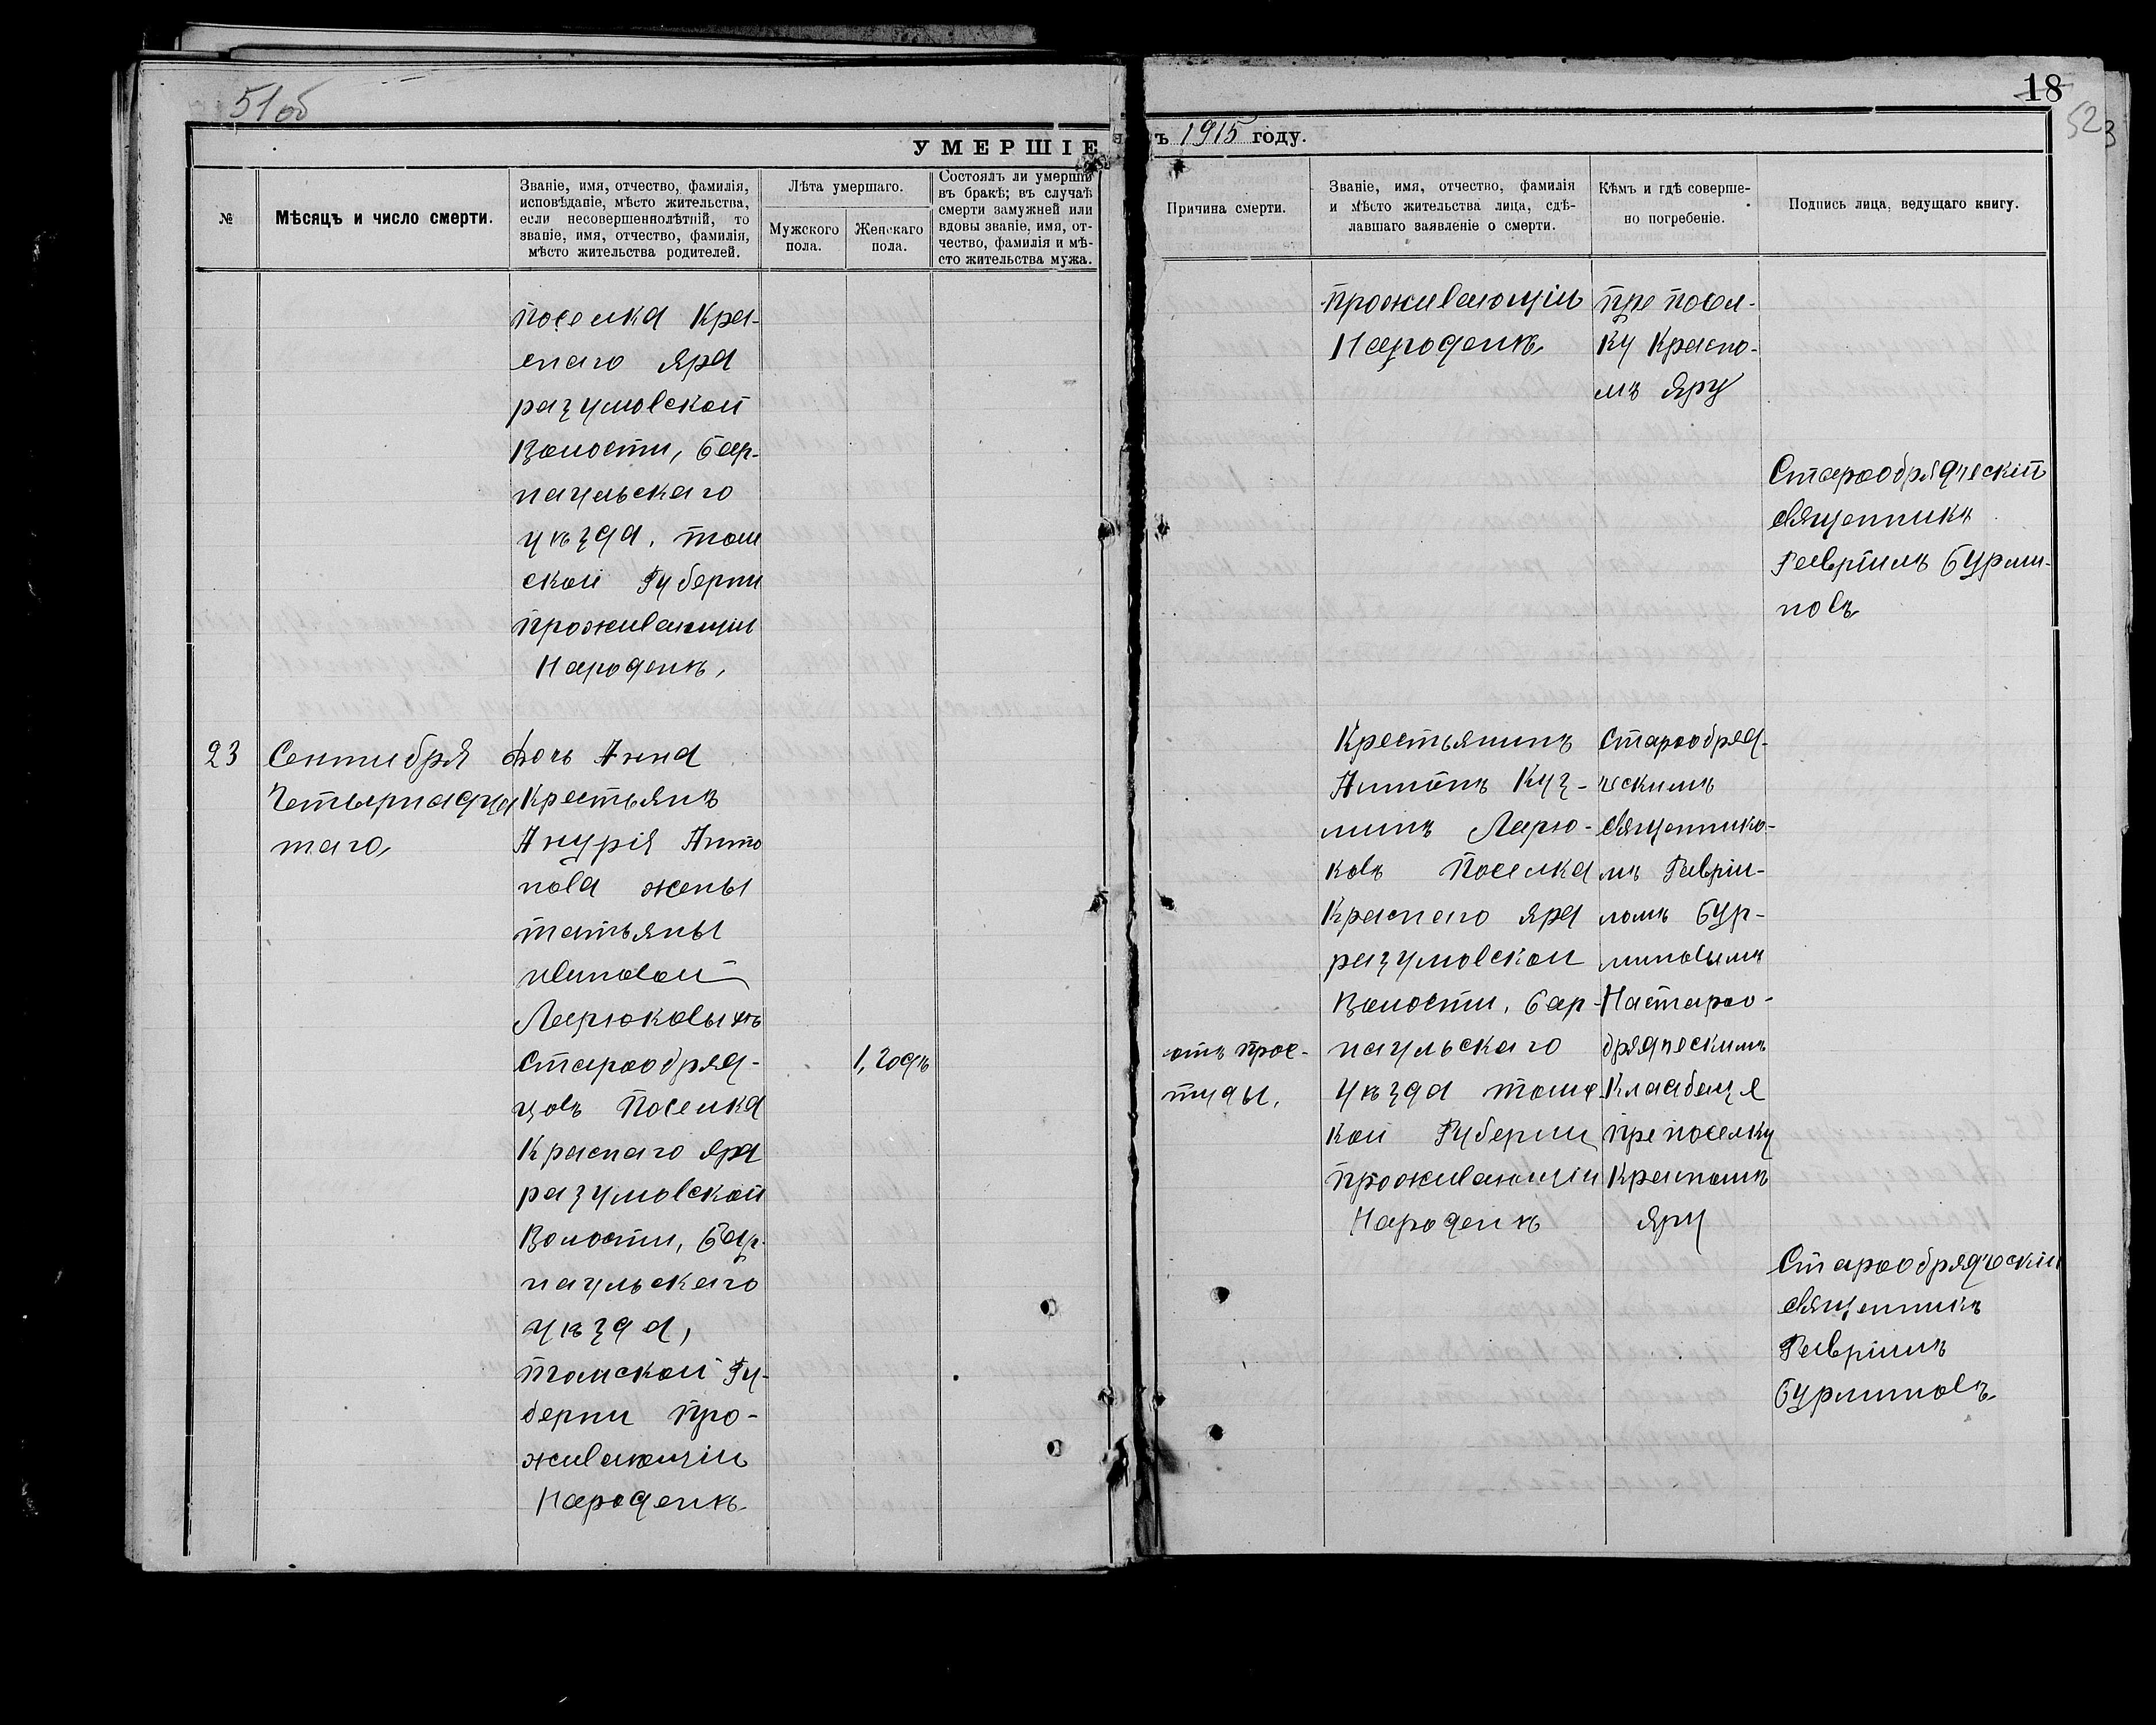 51 об
18
52
УМЕРШІЕ
ъ 1915 году.
№
Мѣсяцъ и число смерти.
Званіе, имя, отчество, фамилія,
исповѣданіе, мѣсто жительства,
если несовершеннолѣтній, то
званіе, имя, отчество, фамилія,
мѣсто жительства родителей.
Лѣта умершаго.
Мужского
пола.
Женскаго
пола.
Состоялъ ли умершій
въ бракѣ; въ случаѣ
смерти замужней или
вдовы званіе, имя, от-
чество, фамилія и мѣ-
сто жительства мужа.
Причина смерти.
Званіе, имя, отчество, фамилія
и мѣсто жительства лица, сдѣ-
лавшаго заявленіе о смерти.
Кѣмъ и гдѣ соверше-
но погребеніе.
Подпись лица, ведущаго книгу.
поселка Кра-
снаго Яра
разумовской
Волости, бар-
наульскаго
уѣзда, том
ской Губерни
проживающіи
Народенѣ,
проживающіи
Народенѣ,
пре посел-
ку Красно-
мъ Яру
Старообрядческій
священникъ
Гавріилъ Бурми-
новъ
23
Сентибря
Четырнадца
таго,
Дочь Анна
Крестьянъ
Анурія Анто
нова жены
татьяны
Ларюковыхъ
Старообряд-
цовъ Поселка
Краснаго Яра
разумовской
Волости, Бар-
наульскаго
уѣзда,
томской Гу-
берни про-
живающіи
Народенѣ.
1, годъ
отъ прос-
туды,
Крестьянинъ
Антонъ Куз-
минъ Ларю-
ковъ Поселка
Краснаго Яра
разумовской
Волости, бар-
наульскаго
уѣзда томс-
кой Губерни
проживающіи
Народенѣ
Старообряд-
ческимъ
священнико-
мъ Гавріи-
ломъ Бур-
миновымъ
Настароо-
брядческимъ
Кладбеще
пре поселку
Красномъ
Яру
Старообрядческіи
священникъ
Гавріилъ
Бурминовъ